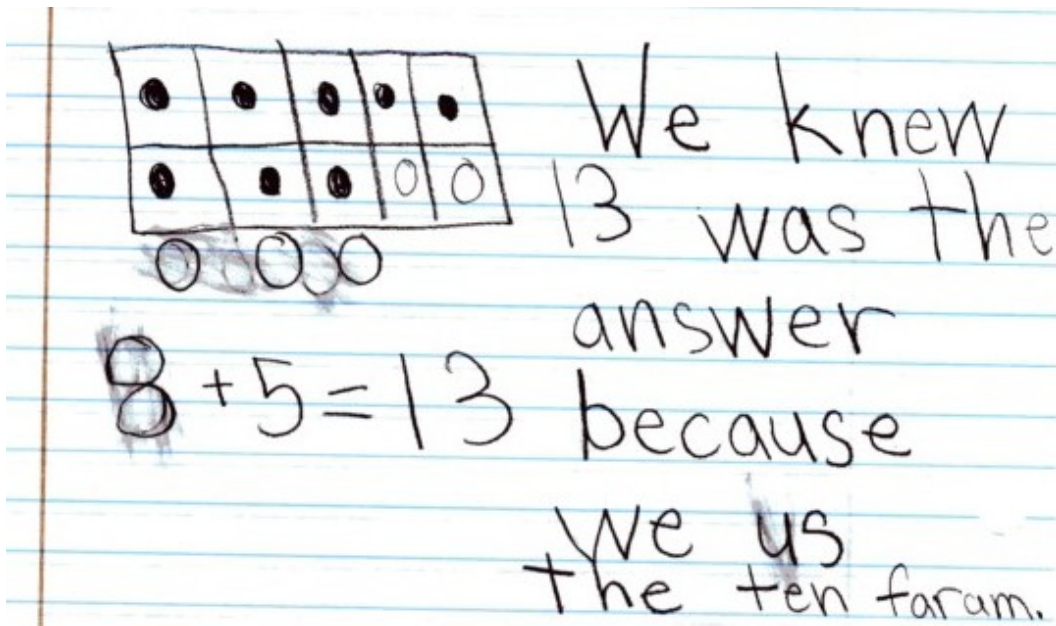 We knew
13 was the
answer
8+5=13 because
we us
the ten faram.